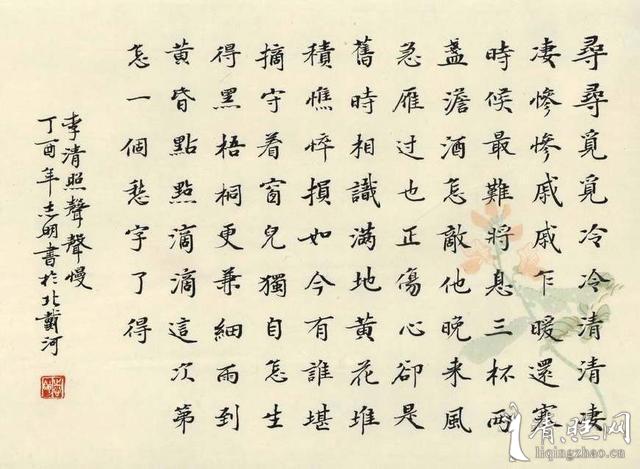 尋尋覓覓冷冷清清凄
凄慘慘戚戚乍暖還寒
時候最難將息三杯兩
盞澹酒怎敵他晚来風
急雁过也正傷心卻是
舊時相識满地黄花堆
積憔悴損如今有誰堪
摘守着窗兒獨自怎生
得黑梧桐更兼細雨到
黄昏點點滴滴這次第
怎一個愁字了得
李清照聲聲慢
丁酉年志明書於北戴河
liqingzhao.cn